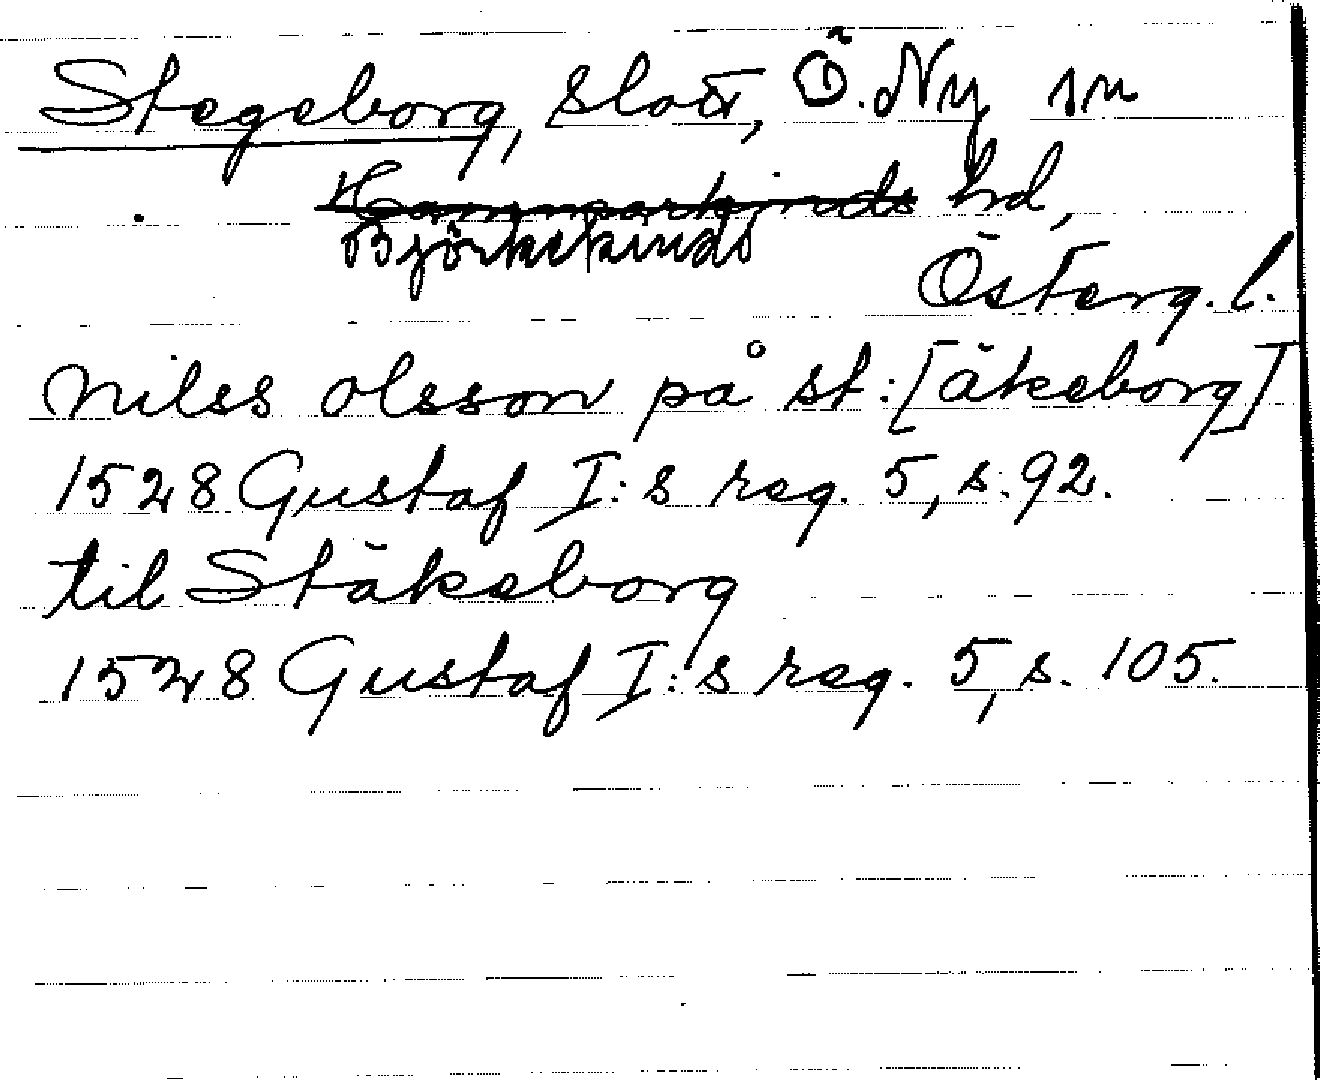 Stegeborg, slott, Ö. Ny sn
Hammarkinds hd,
Björkekinds
Österg. l.
Nils olsson på st: [äkeborg]
1528 Gustaf I: s reg. 5, s. 92.
til Stäkeborg
1528 Gustaf I: s reg. 5, s. 105.